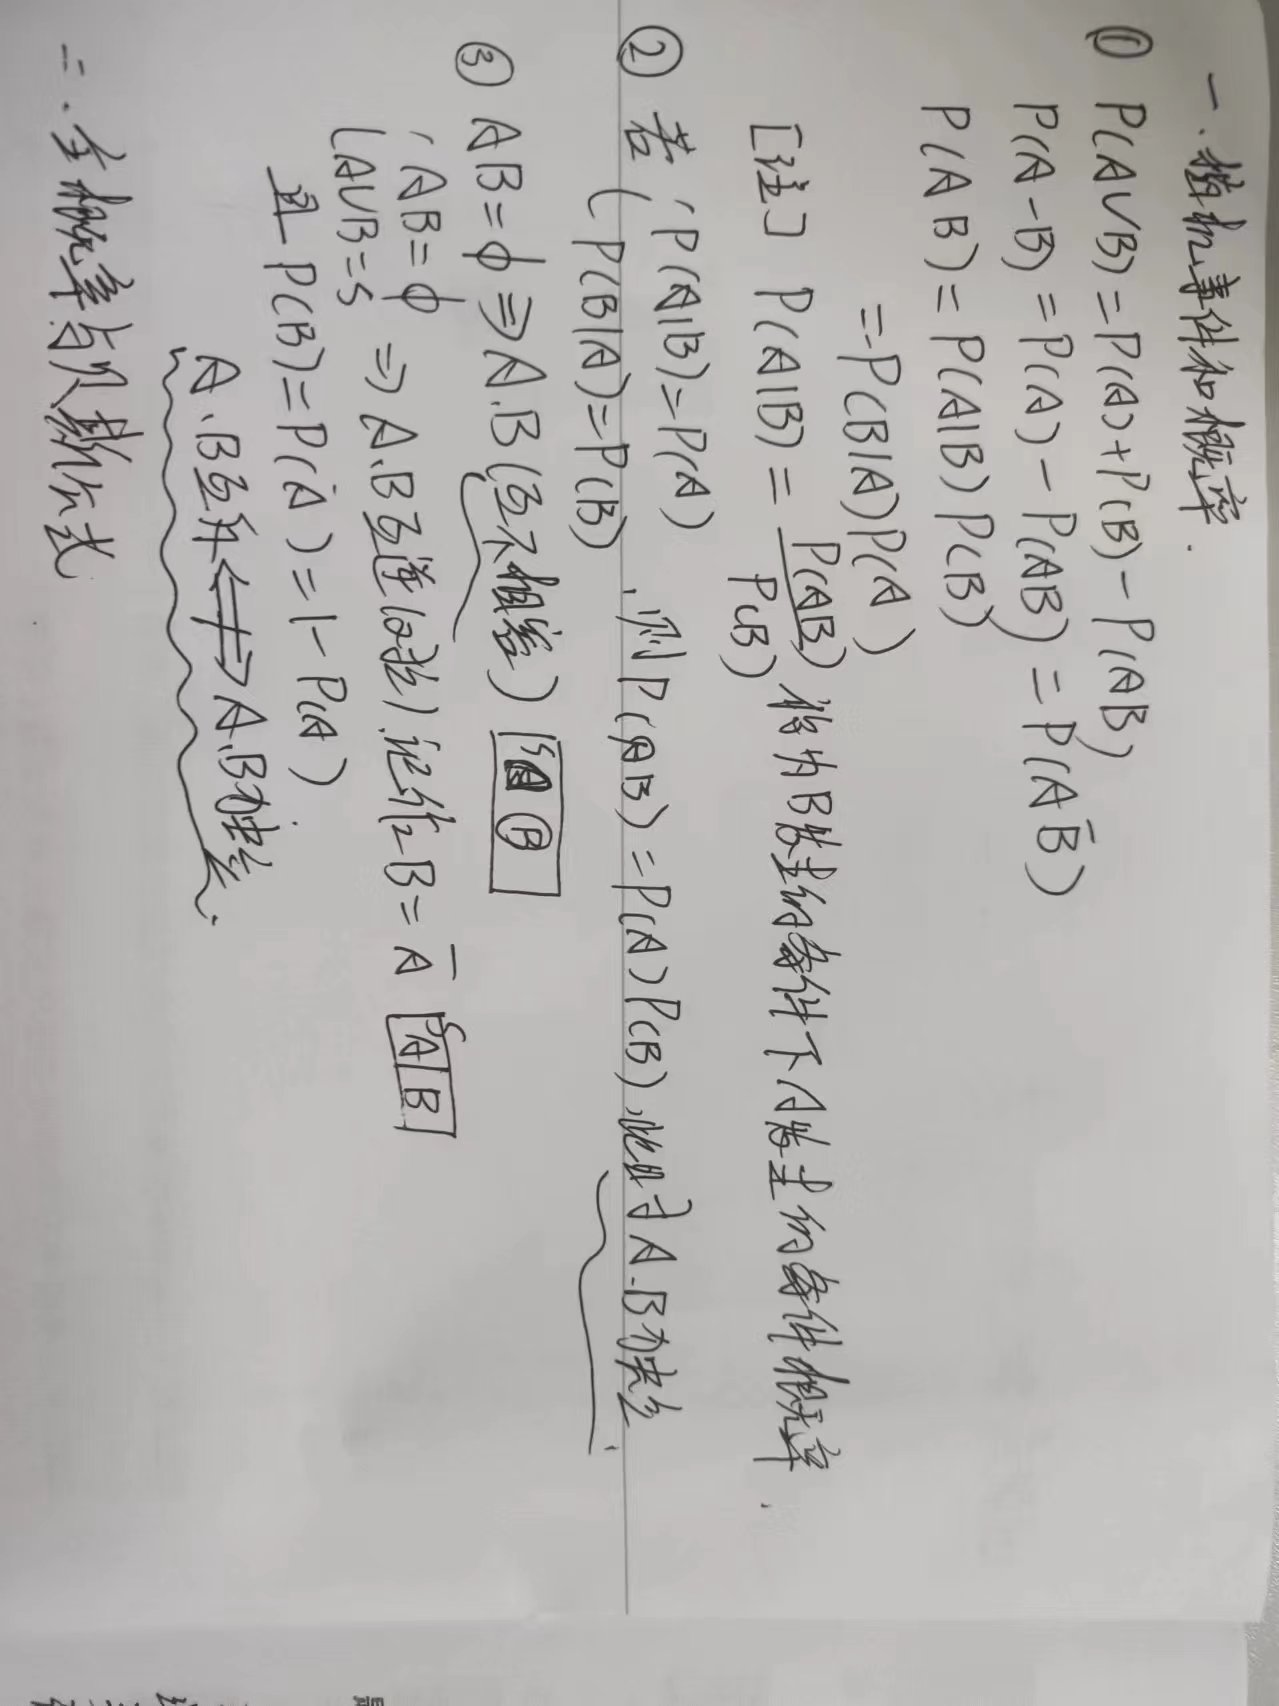 一.随机事件和概率.
① P(A∪B)=P(A)+P(B)-P(AB)
P(A-B)=P(A)-P(AB)=P(AB̄)
P(AB)=P(A|B)P(B)
=P(B|A)P(A)
[注] P(A|B)=P(AB)/P(B) 称为B发生的条件下A发生的条件概率.
② 若{P(A|B)=P(A)
P(B|A)=P(B) ,则P(AB)=P(A)P(B),此时A.B独立.
③ AB=ϕ⇒A.B(互不相容) S A B
{AB=ϕ
A∪B=S ⇒A.B互逆(对立)记作B=Ā S A B
且P(B)=P(Ā)=1-P(A)
A、B互斥⇎A、B独立.
二.全概率与贝叶斯公式